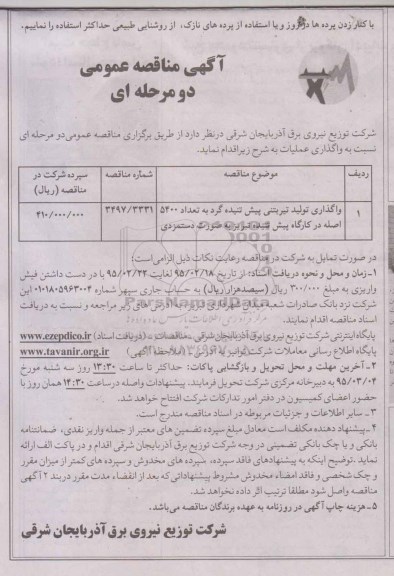 با کنار زدن پرده ها در روز و یا استفاده از پرده های نازک، از روشنایی طبیعی حداکثر استفاده را نماییم.
آگهی مناقصه عمومی
دو مرحله ای
شرکت توزیع نیروی برق آذربایجان شرقی در نظر دارد از طریق برگزاری مناقصه عمومی دو مرحله ای
نسبت به واگذاری عملیات به شرح زیر اقدام نماید.
ردیف موضوع مناقصه شماره مناقصه سپرده شرکت در مناقصه (ریال)
۱ واگذاری تولید تیر بتنی پیش تنیده گرد به تعداد ۵۴۰۰ ۳۴۹۷/۳۳۳۱ ۴۱۰/۰۰۰/۰۰۰
اصله در کارگاه پیش تنیده تبریز به صورت دستمزدی
در صورت تمایل به شرکت در مناقصه رعایت نکات ذیل الزامی است:
۱-زمان و محل و نحوه دریافت اسناد: از تاریخ ۹۵/۰۲/۱۸ لغایت ۹۵/۰۲/۲۲ با در دست داشتن فیش
واریزی به مبلغ ۳۰۰/۰۰۰ ریال (سیصد هزار ریال) به حساب جاری سپهر شماره ۰۱۰۱۸۰۵۹۶۳۰۰۴ این
شرکت نزد بانک صادرات شعبه میدان شهرداری تبریز به آدرس های زیر مراجعه و نسبت به دریافت
اسناد مناقصه اقدام نمایند.
پایگاه اینترنتی شرکت توزیع نیروی برق آذربایجان شرقی _ مناقصات _ (دریافت اسناد) www.ezepdico.ir
پایگاه اطلاع رسانی معاملات شرکت توانیر به آدرس (ملاحظه آگهی) www.tavanir.org.ir
۲-آخرین مهلت و محل تحویل و بازگشایی پاکات: حداکثر تا ساعت ۱۳:۳۰ روز سه شنبه مورخ
۹۵/۰۳/۰۴ به دبیرخانه مرکزی شرکت تحویل فرمایند. پیشنهادات واصله در ساعت ۱۴:۳۰ همان روز با
حضور اعضای کمیسیون در دفتر امور تدارکات شرکت افتتاح خواهد شد.
۳- سایر اطلاعات و جزئیات مربوطه در اسناد مناقصه مندرج است.
۴-پیشنهاد دهنده مکلف است معادل مبلغ سپرده تضمین های معتبر از جمله واریز نقدی، ضمانتنامه
بانکی و یا چک بانکی تضمینی در وجه شرکت توزیع برق آذربایجان شرقی اقدام و در پاکت الف ارائه
نماید. توضیح اینکه به پیشنهادهای فاقد سپرده، سپرده های مخدوش و سپرده های کمتر از میزان مقرر
و چک شخصی و فاقد امضاء مخدوش مشروط پیشنهاداتی که بعد از انقضاء مدت مقرر در بند ۲ آگهی
مناقصه واصل شود مطلقا ترتیب اثر داده نخواهد شد.
۵-هزینه چاپ آگهی در روزنامه به عهده برندگان مناقصه می‌باشد.
شرکت توزیع نیروی برق آذربایجان شرقی